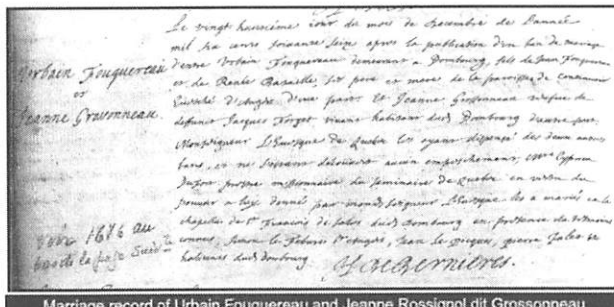 Urbain Fouquereau
et
Jeanne Grossonneau.
Voir 1676 au
bas de la page
Le vingt huitiéme jour du mois de Decembre de l'année
mil six cens soixante seize apres la publication d'un ban de mariage
d'entre Urbain Fouquereau demeurant a Dombourg, fils de Jean Fouquereau
et de Renée Bataille, ses pere et mere de la parroisse de
Evesché d'Angers d'une part; Et Jeanne Grossonneau vefve de
defunct Jacques Forget vivant habitant dud. Dombourg d'autre part,
Monseigneur L'Evesque de Quebec les ayant dispensé des deux autres
bans, et ne s'estant découvert aucun empeschement, Mre Cyprien
Dufort prestre missionnaire du seminaire de Quebec en vertu du
pouvoir a luy donné par mond. Seigneur L'Evesque les a mariés en la
chapelle de St. François de Sales dud. Dombourg en presence de tesmoins
connus, Simon le Febvre Jean le Picque, pierre
habitans dud. Dombourg.
H. de Bernieres.
Marriage record of Urbain Fouquereau and Jeanne Rossignol dit Grossonneau